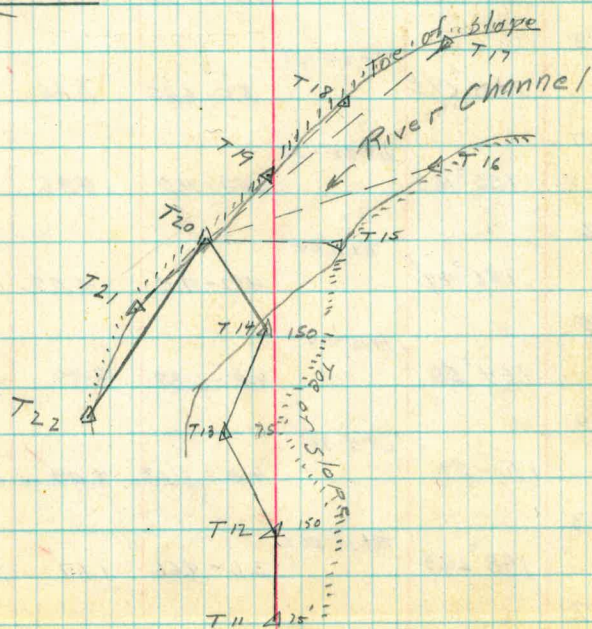 Toe of slope
T17
T18
River Channel
T19
T16
T20
T15
T21
T14 150
Toe of Slope
T22
T13 75
T12 150
T11 75'